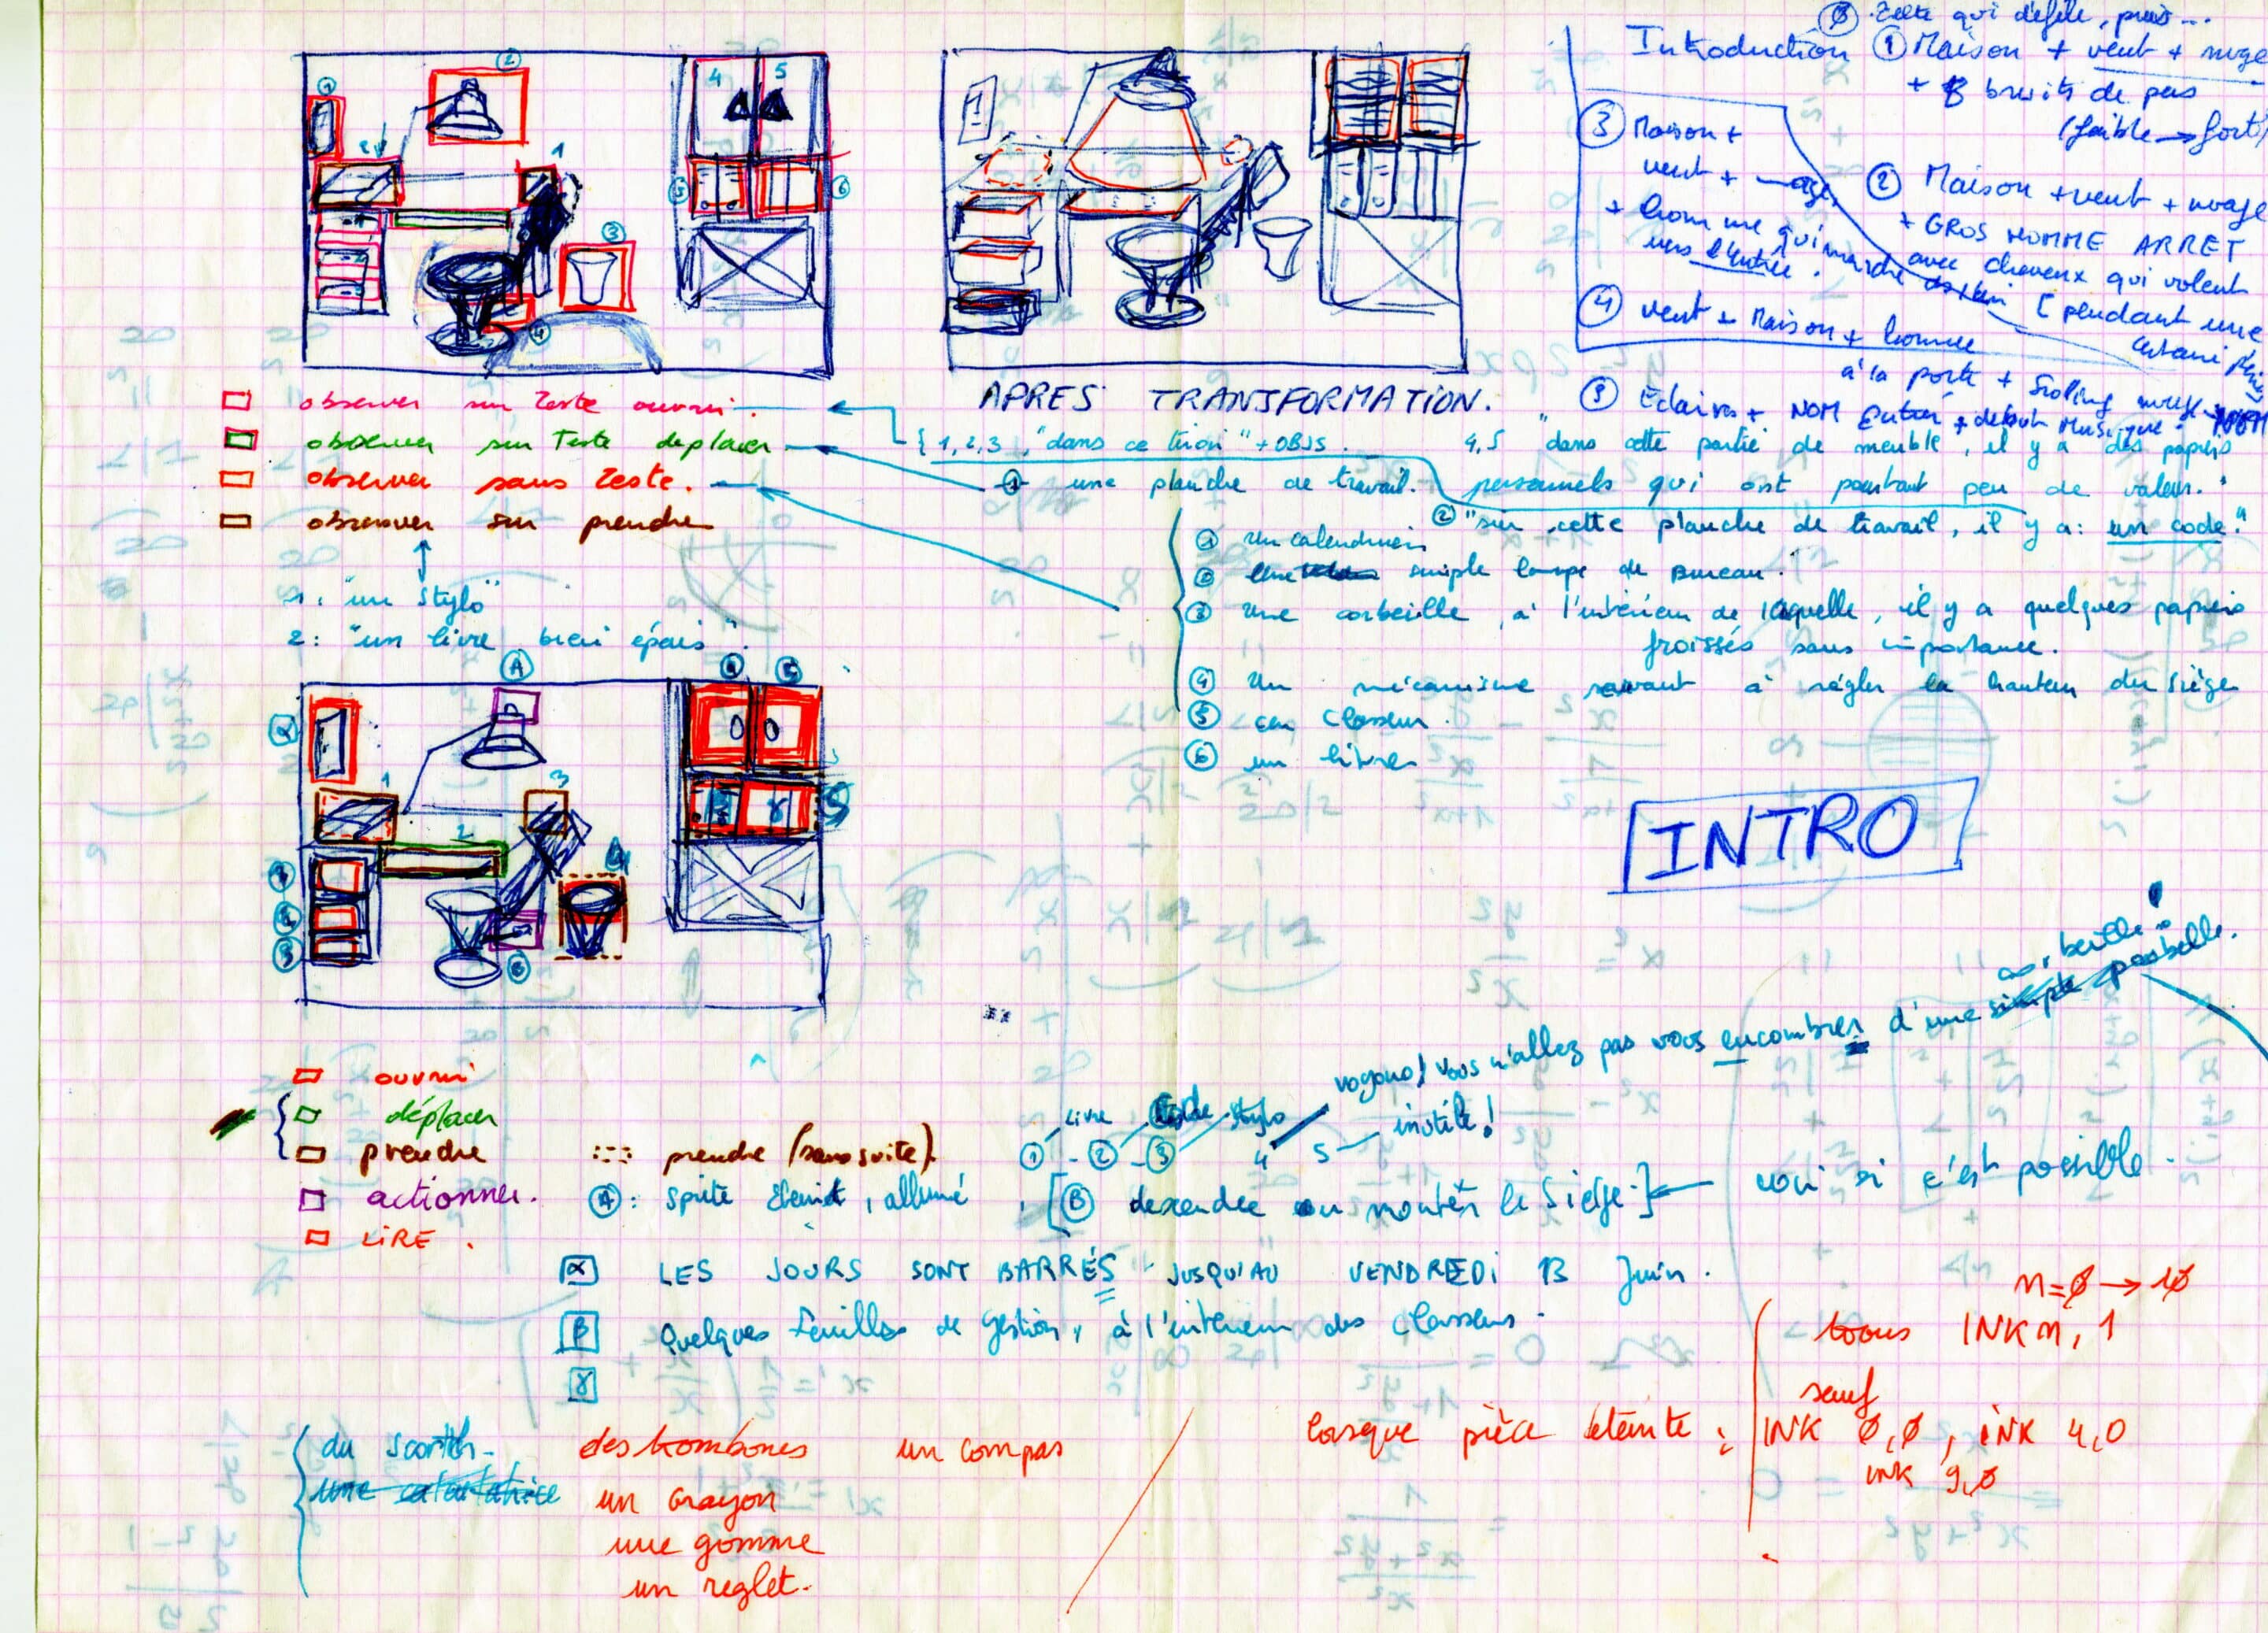 Introduction ① Maison + vent + nuage
+ bruits de pas
(faible → fort)
③ Maison +
vent +
+ homme qui marche
vers l'entrée.
② Maison + vent + nuage
+ GROS HOMME ARRET
avec cheveux qui volent
[pendant une
④ vent + Maison + homme
à la porte +
Eclairs + NOM
APRES TRANSFORMATION.
observer sur Texte ouvrir.
observer sur Texte deplacer
observer sans Texte.
observer sur prendre
1: "un stylo"
2: "un livre bien épais".
{1,2,3, "dans ce tiroir" + OBJS.
① une planche de travail.
4,5 "dans cette partie de meuble, il y a des papiers
personnels qui ont pourtant peu de valeur."
② "sur cette planche de travail, il y a: un code."
① Un calendrier
② Une simple lampe de Bureau.
③ Une corbeille, à l'intérieur de laquelle, il y a quelques papiers
froissés sans importance.
④ Un mécanisme servant à régler la hauteur du Siège
⑤ un classeur.
⑥ un livre
INTRO
voyons! vous n'allez pas vous encombrer d'une simple poubelle.
corbeille
ouvrir
déplacer
prendre
prendre (sans suite).
actionner.
LIRE.
① - ② - ③ 4 5
Livre Code Stylo
inutile!
Ⓐ: Sprite Eteint, allumé, [Ⓑ descendre ou monter le Siège.] ← voir si c'est possible.
α LES JOURS SONT BARRÉS JUSQU'AU VENDREDI 13 Juin.
β Quelques feuilles de gestion, à l'intérieur des classeurs.
γ
du scotch
une calculatrice
des trombones
un crayon
une gomme
un reglet.
un compas
lorsque pièce éteinte:
n=0 → 10
tous INK n, 1
sauf
INK 0,0, INK 4,0
INK 9,0